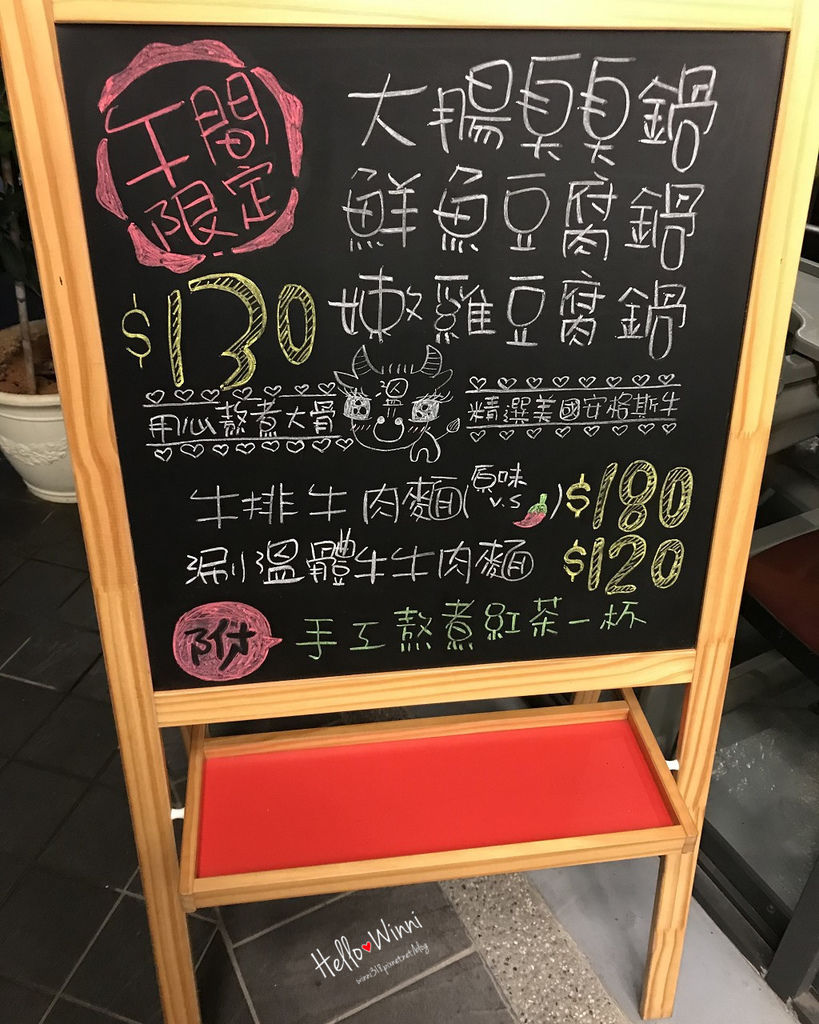 午間
限定
大腸臭臭鍋
鮮魚豆腐鍋
$130
嫩雞豆腐鍋
溫
用心熬煮大骨
精選美國安格斯牛
牛排牛肉麵(原味 v.s ) $180
涮溫體牛牛肉麵 $120
附 手工熬煮紅茶一杯
Hello Winni
winni318.pixnet.net/blog